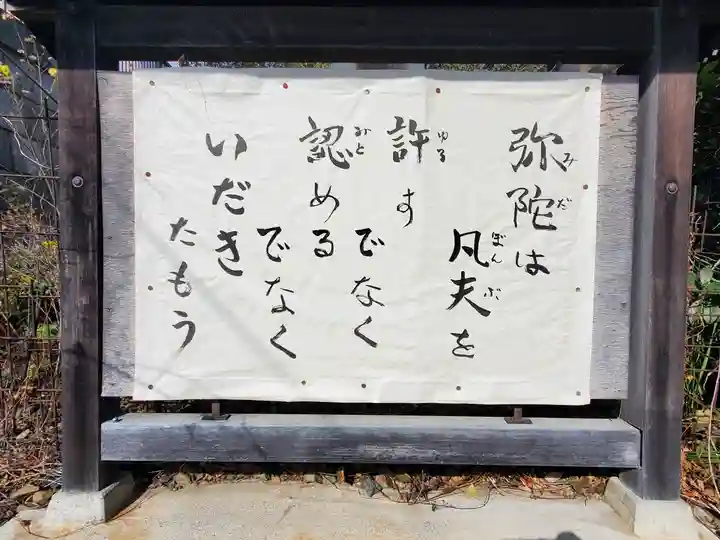 弥陀は
みだ
凡夫を
ぼんぶ
許す
ゆる
でなく
認める
みと
でなく
いだき
たもう